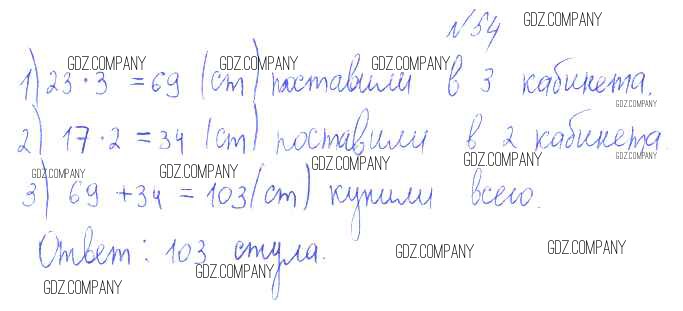 №54
GDZ.COMPANY
GDZ.COMPANY GDZ.COMPANY GDZ.COMPANY
1) 23 · 3 = 69 (ст) поставили в 3 кабинета.
GDZ.COMPANY
2) 17 · 2 = 34 (ст) поставили в 2 кабинета
GDZ.COMPANY GDZ.COMPANY GDZ.COMPANY GDZ.COMPANY GDZ.COMPANY
3) 69 + 34 = 103 (ст) купили всего.
Ответ: 103 стула.
GDZ.COMPANY GDZ.COMPANY
GDZ.COMPANY
GDZ.COMPANY